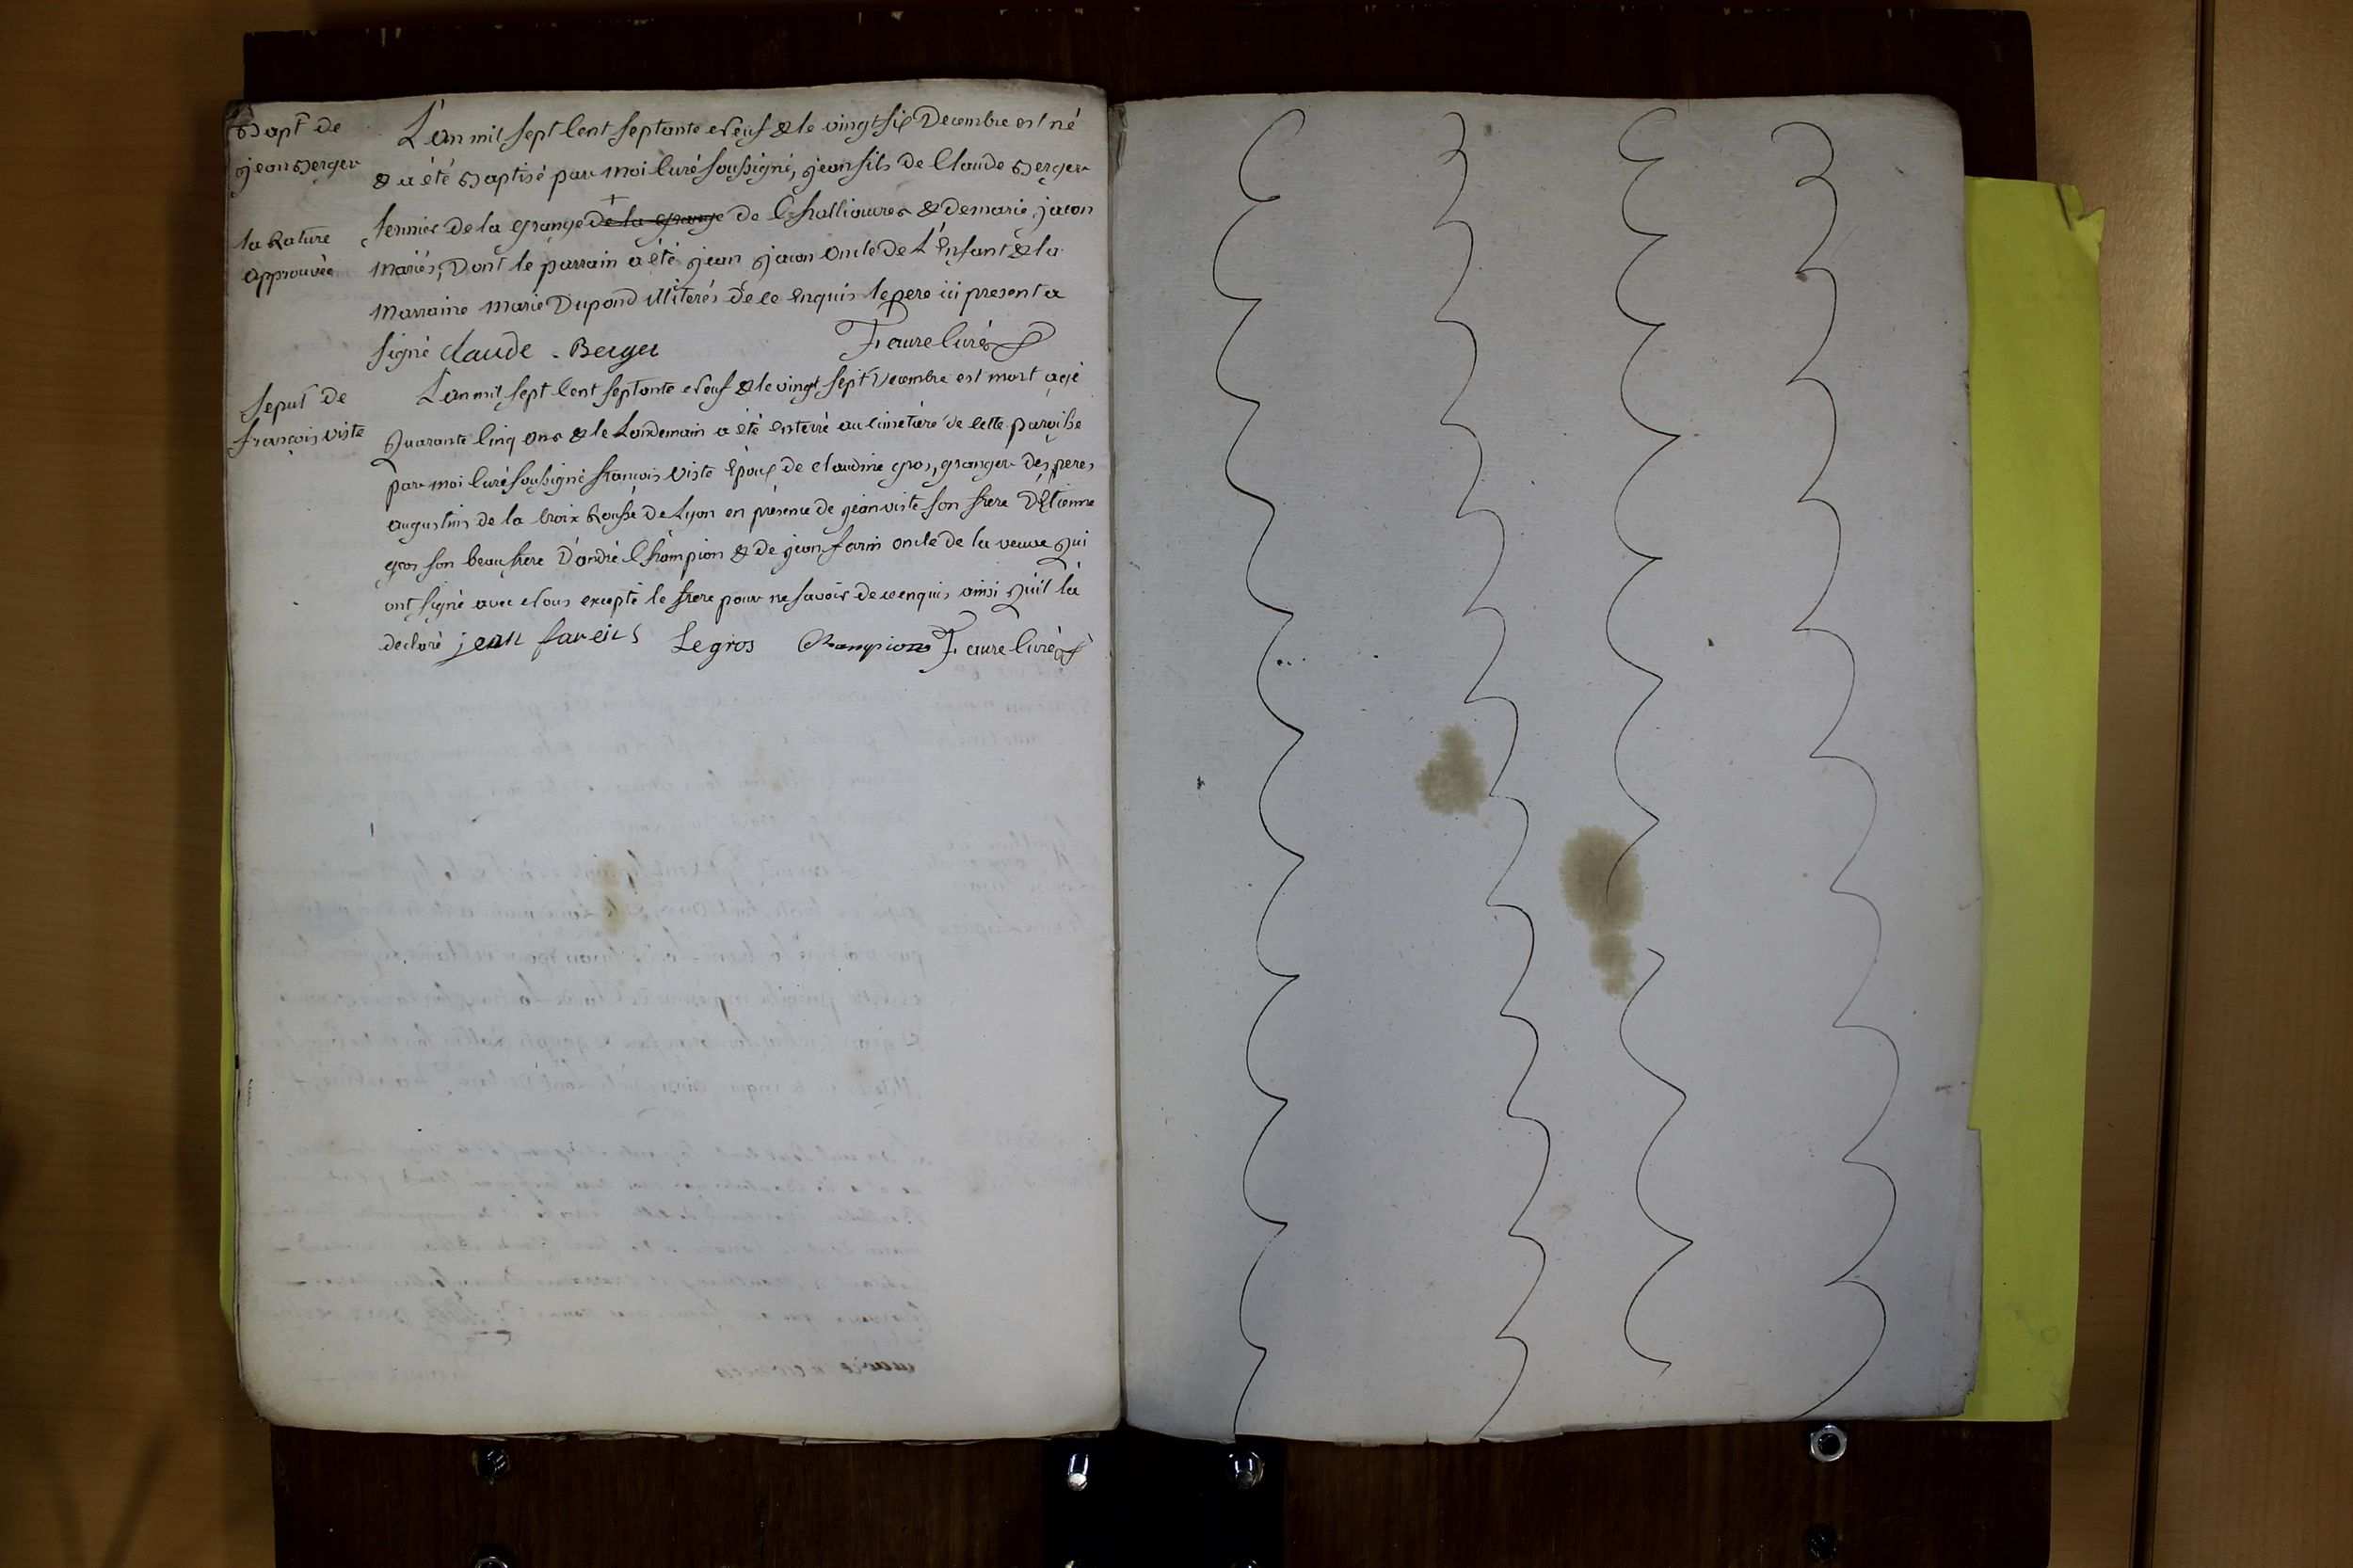 Bapt de
jean Berger
L'an mil sept Cent septante Neuf & le vingt six Decembre est né
& a été Baptisé par moi Curé soussigné, jean fils de Claude Berger
fermier de la grange de la grange de Challioures & de marie jacon
la Rature
approuvée
mariés, Dont le parrain a été jean jacon oncle de L'Enfant & la
marraine marie Dupond illiterés de ce Enquis le pere ici present a
signé Claude . Berger Faure Curé
Sepul de
françois viste
L'an mil sept Cent septante Neuf & le vingt sept Decembre est mort agé
Quarante Cinq ans & le Lendemain a été Enterré au cimetière de cette paroisse
par moi Curé soussigné francois viste Epoux de claudine gros, granger des peres
augustins de la Croix Rousse de Lyon en présence de jean viste son frere D'Etienne
gros son beaufrere D'andré Champion & de jean farin oncle de la veuve Qui
ont signé avec Nous excepté le frere pour ne savoir de ce enquis ainsi Qu'il l'a
declaré jean fareins Legros Champion Faure Curé